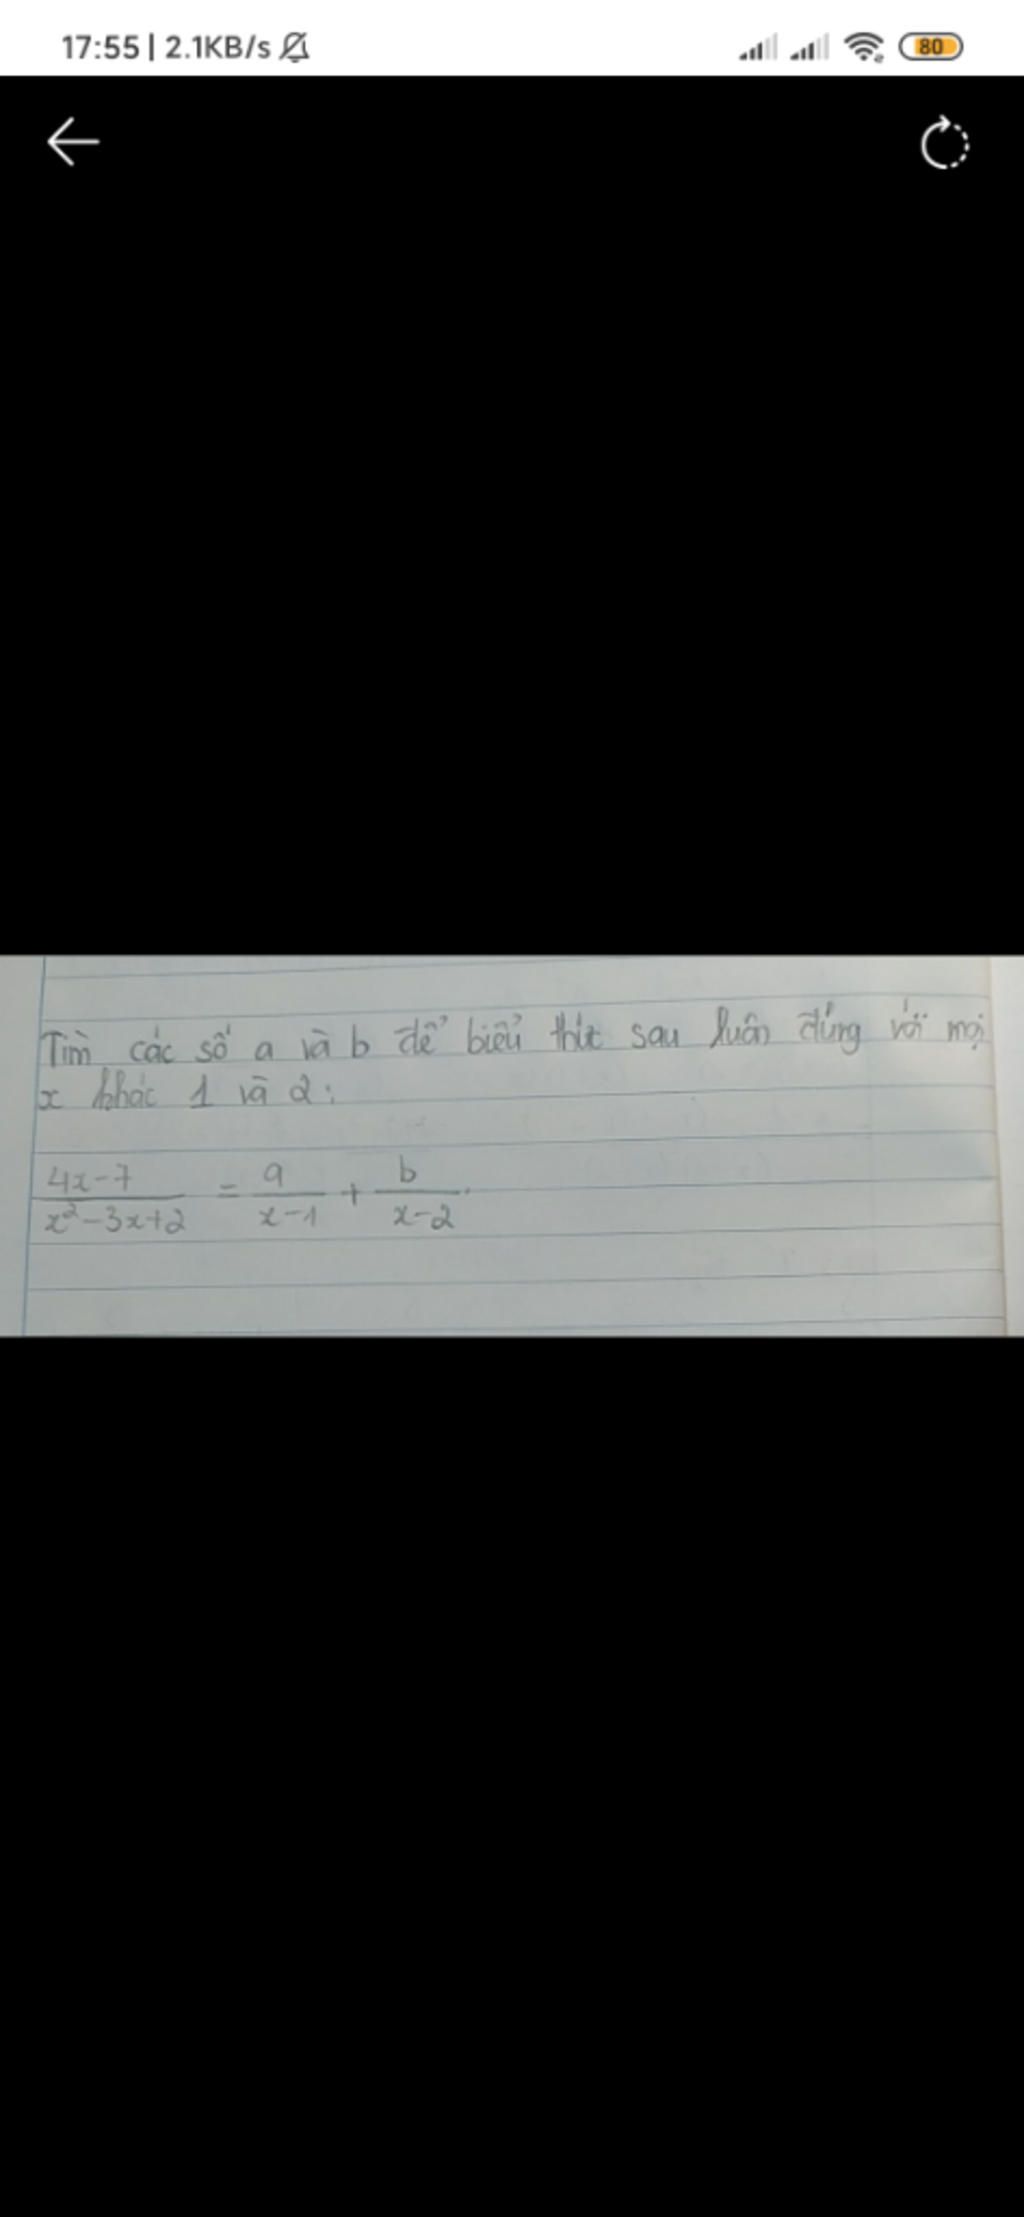 17:55 | 2.1KB/s
80
Tìm các số a và b để biểu thức sau luôn đúng với mọi
x khác 1 và 2:
4x-7/x²-3x+2 = a/x-1 + b/x-2.